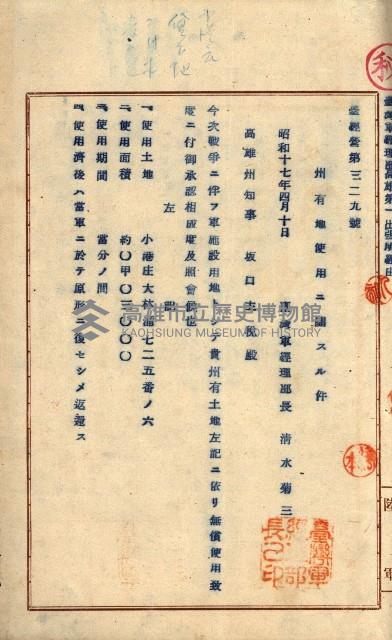 臺經營第三二九號
州有地使用ニ關スル件
昭和十七年四月十日
臺灣軍經理部長 清水菊三
高雄州知事 坂口主税殿
今次戰爭ニ伴フ軍施設用地トシテ貴州有土地左記ニ依リ無償使用致
度ニ付御承認相成度及照會候也
左記
一、使用土地 小港庄大林蒲七二五番ノ六
二、使用面積 約〇甲〇三〇〇〇
三、使用期間 當分ノ間
四、使用濟後ハ當軍ニ於テ原形ニ復セシメ返還ス
陸軍
臺灣軍經理部長之印
高雄市立歷史博物館
KAOHSIUNG MUSEUM OF HISTORY